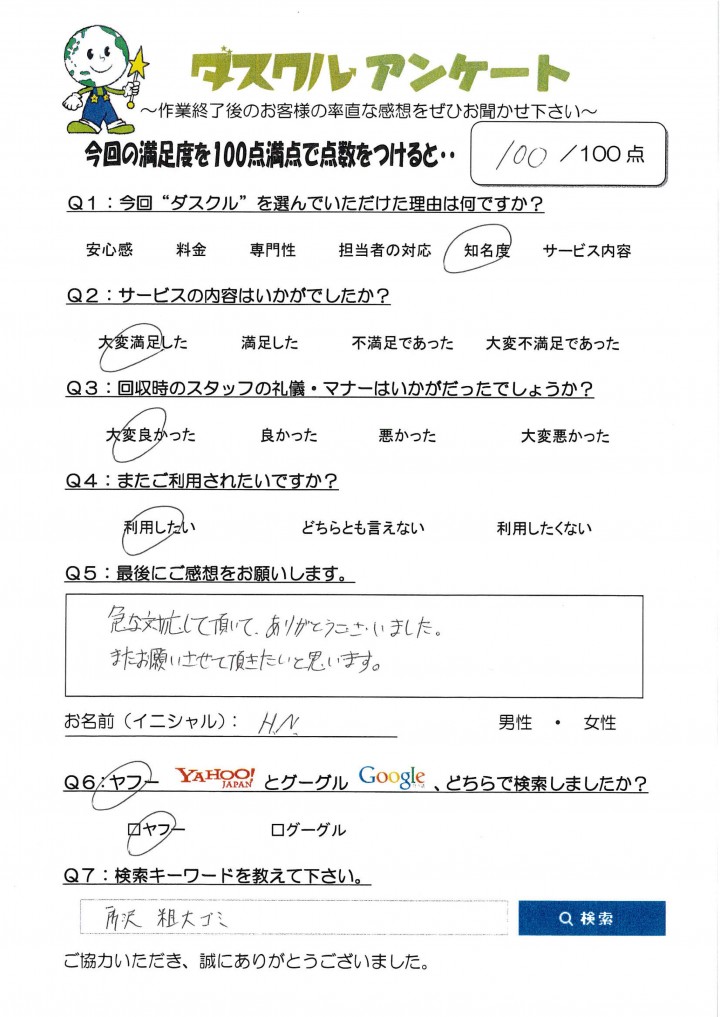 ダスクル アンケート
～作業終了後のお客様の率直な感想をぜひお聞かせ下さい～
今回の満足度を100点満点で点数をつけると・・ 100 /100点
Q1：今回“ダスクル”を選んでいただけた理由は何ですか？
安心感 料金 専門性 担当者の対応 知名度 サービス内容
Q2：サービスの内容はいかがでしたか？
大変満足した 満足した 不満足であった 大変不満足であった
Q3：回収時のスタッフの礼儀・マナーはいかがだったでしょうか？
大変良かった 良かった 悪かった 大変悪かった
Q4：またご利用されたいですか？
利用したい どちらとも言えない 利用したくない
Q5：最後にご感想をお願いします。
急な対応して頂いて、ありがとうございました。
またお願いさせて頂きたいと思います。
お名前（イニシャル）： H.N. 男性 ・ 女性
Q6：ヤフー YAHOO! JAPAN とグーグル Google 、どちらで検索しましたか？
□ヤフー □グーグル
Q7：検索キーワードを教えて下さい。
所沢 粗大ゴミ 検索
ご協力いただき、誠にありがとうございました。